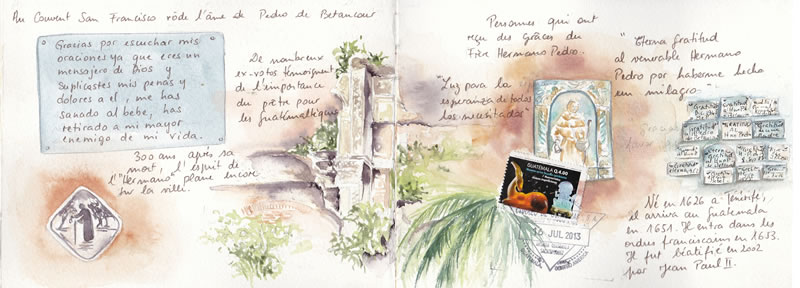 Au Couvent San Francisco rôde l'âme de Pedro de Betancour
Gracias por escuchar mis
oraciones ya que eres un
mensajero de Dios y
suplicastes mis penas y
dolores a el, me has
sanado al bebe, has
retirado a mi mayor
enemigo de mi vida.
De nombreux
ex-votos témoignent
de l'importance
du prêtre pour
les guatémaltèques
300 ans après sa
mort, l'esprit de
l'"Hermano" plane encore
sur la ville.
Personnes qui ont
reçu des Grâces du
Frère Hermano Pedro.
"Luz para la
esperanza de todos
los necesitados"
"Eterna Gratitud
al venerable Hermano
Pedro por haberme hecho
un milagro"
GUATEMALA Q.4.00
16 JUL 2013
Né en 1626 à Ténérife,
il arriva au Guatemala
en 1651. Il entra dans les
ordres franciscains en 1653.
Il fut béatifié en 2002
par Jean Paul II.